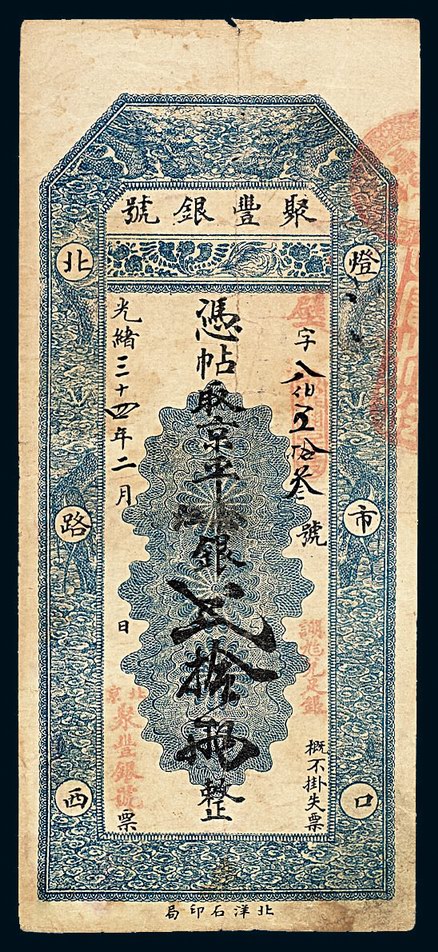 聚豐銀號
燈市口
北路西
字八佰五拾叁號
概不掛失票
憑帖取京平銀弍拾兩整
光緒三十四年二月 日票
北京
聚豐銀號
北洋石印局